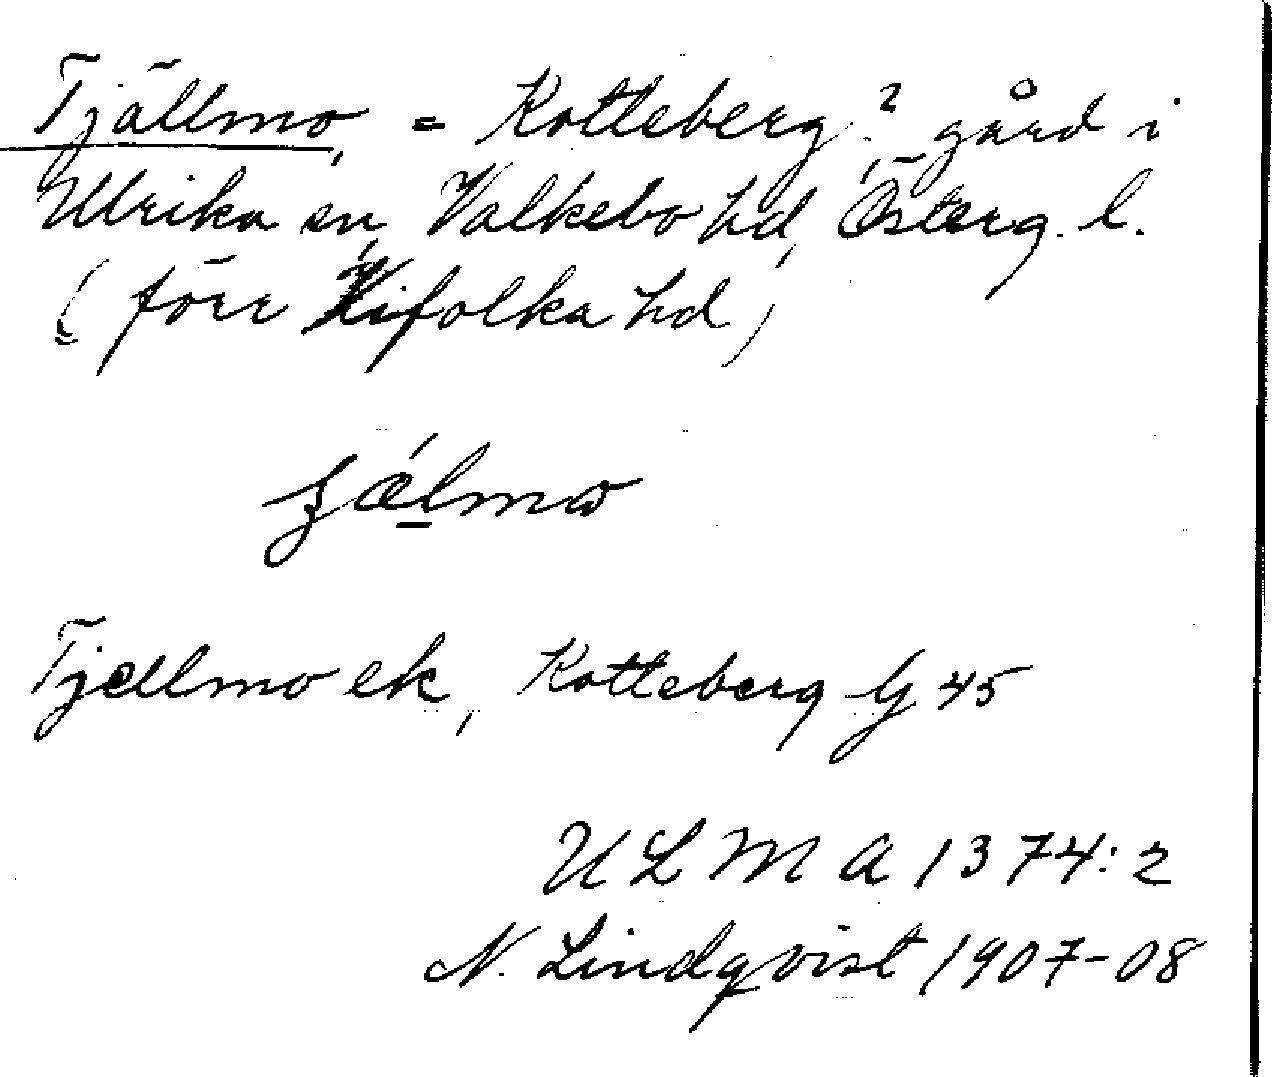 Tjällmo, = Kotteberg?, gård i
Ulrika sn, Valkebo hd, Österg. l.
(förr Vifolka hd)
Tjellmo ek, Kotteberg G 45
ULMA 1374:2
N. Lindqvist 1907-08